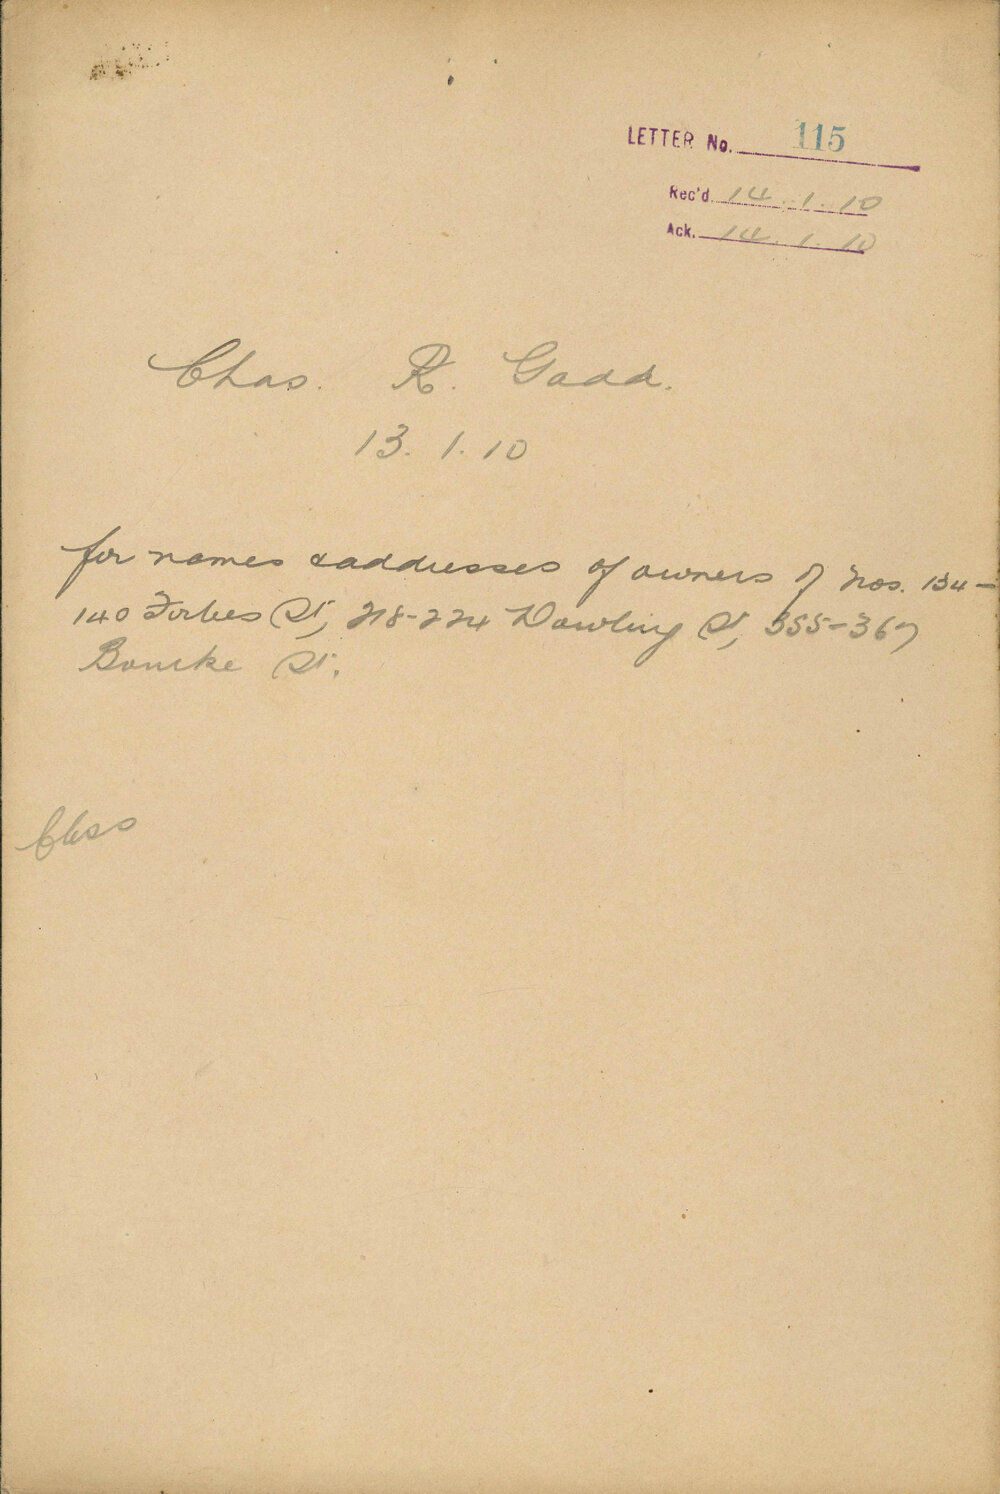 LETTER No. 115
Rec'd. 14.1.10
Ack. 14.1.10
Chas. R. Gadd.
13.1.10
for names & addresses of owners of Nos. 134-
140 Forbes St, 218-224 Dowling St, 355-367
Bourke St.